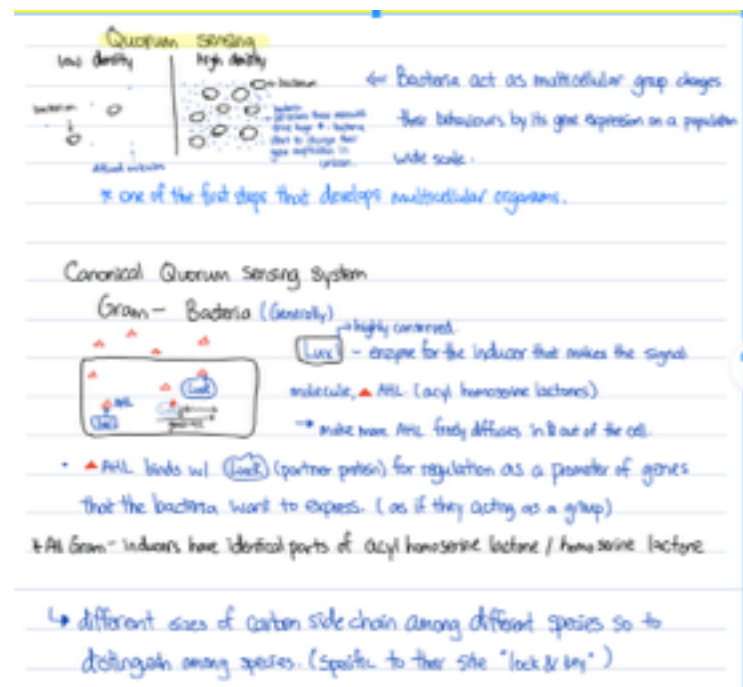 Quorum sensing
low density
high density
bacterium
bacterium
← Bacteria act as multicellular group changes
their behaviours by its gene expression on a population
wide scale.
* one of the first steps that develops multicellular organisms.
Canonical Quorum Sensing System
Gram- Bacteria (Generally)
→ highly conserved.
LuxI - enzyme for the inducer that makes the signal
molecule, AHL (acyl homoserine lactones)
→ make more AHL freely diffuses in & out of the cell.
LuxR
AHL
LuxI
• AHL binds w/ LuxR (partner protein) for regulation as a promoter of genes
that the bacteria want to express. (as if they acting as a group)
* All Gram- inducers have identical parts of acyl homoserine lactone / homo serine lactone
↳ different sizes of carbon side chain among different species so to
distinguish among species. (specific to their site "lock & key")